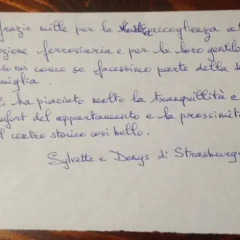 grazie mille per la vostra accoglienza a
zione ferroviaria e per la loro gentil
noi come se facessimo parte della
miglia.
ha piaciuto molto la tranquillità e
fort del appartamento e la prossimit
l centro storico così bello.
Sylvette e Denys di Strasburg